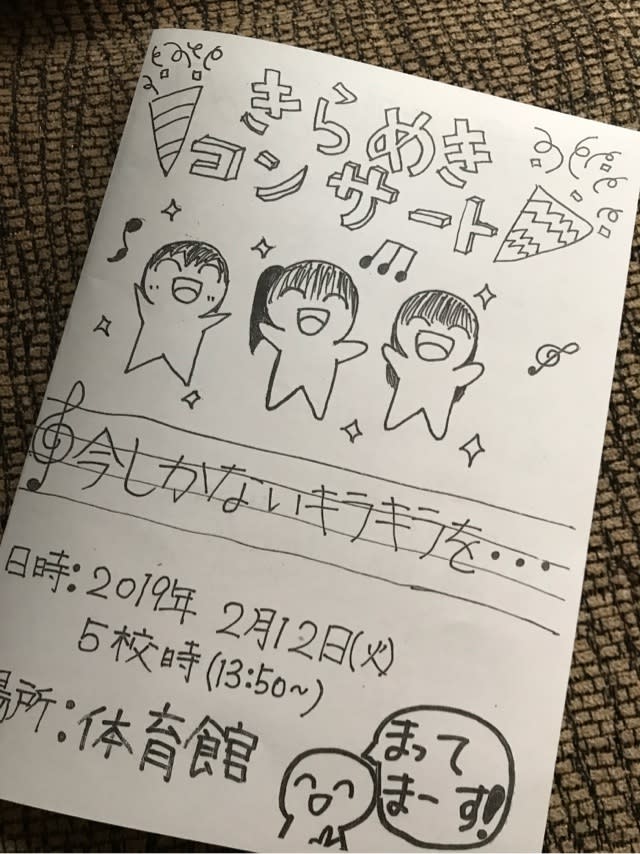 きらめき
コンサート
今しかないキラキラを・・・
日時:2019年 2月12日(火)
5校時(13:50~)
場所:体育館
まって
まーす!